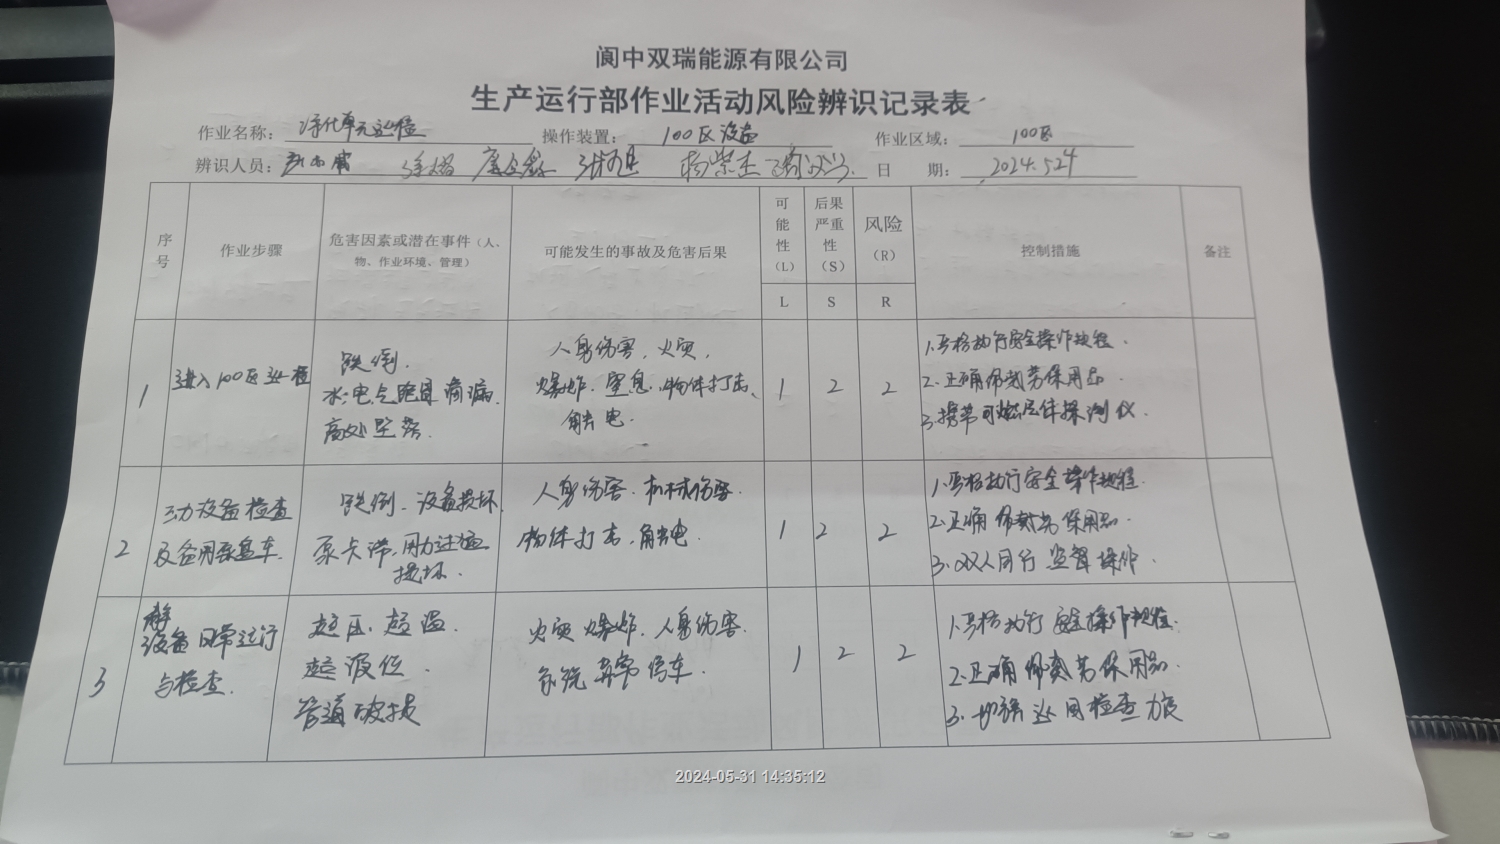 阆中双瑞能源有限公司
生产运行部作业活动风险辨识记录表
作业名称： 净化单元巡检 操作装置： 100区设备 作业区域： 100区
辨识人员： 日 期： 2024.5.24
序号 作业步骤 危害因素或潜在事件（人、物、作业环境、管理） 可能发生的事故及危害后果 可能性（L） 后果严重性（S） 风险（R） 控制措施 备注
L S R
1 进入100区巡检 跌倒. 水.电气跑冒滴漏. 高处坠落. 人身伤害、火灾、爆炸、窒息、物体打击、触电. 1 2 2 1.严格执行安全操作规程. 2.正确佩戴劳保用品. 3.携带可燃气体探测仪.
2 动设备检查及备用泵盘车. 跌倒、设备损坏 泵卡滞,用力过猛损坏. 人身伤害.机械伤害. 物体打击,触电. 1 2 2 1.严格执行安全操作规程. 2.正确佩戴劳保用品. 3.双人同行 监督操作.
3 静设备日常运行与检查. 超压.超温. 超液位. 管道破损 火灾 爆炸.人身伤害. 系统异常停车. 1 2 2 1.严格执行安全操作规程. 2.正确佩戴劳保用品. 3.加强巡回检查力度
2024-05-31 14:35:12